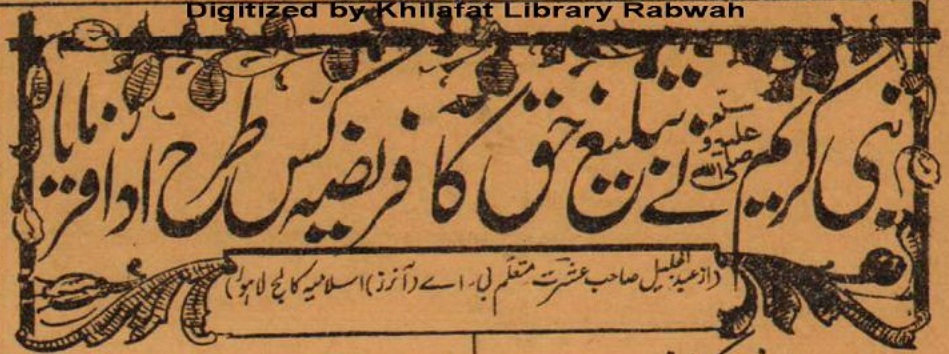 Digitized by Khilafat Library Rabwah
نبی کریم صلی اللہ علیہ وسلم نے تبلیغ حق کا فریضہ کس طرح ادا فرمایا
(از عبد الجلیل صاحب عشرت متعلم بی۔ اے (آنرز) اسلامیہ کالج لاہور)